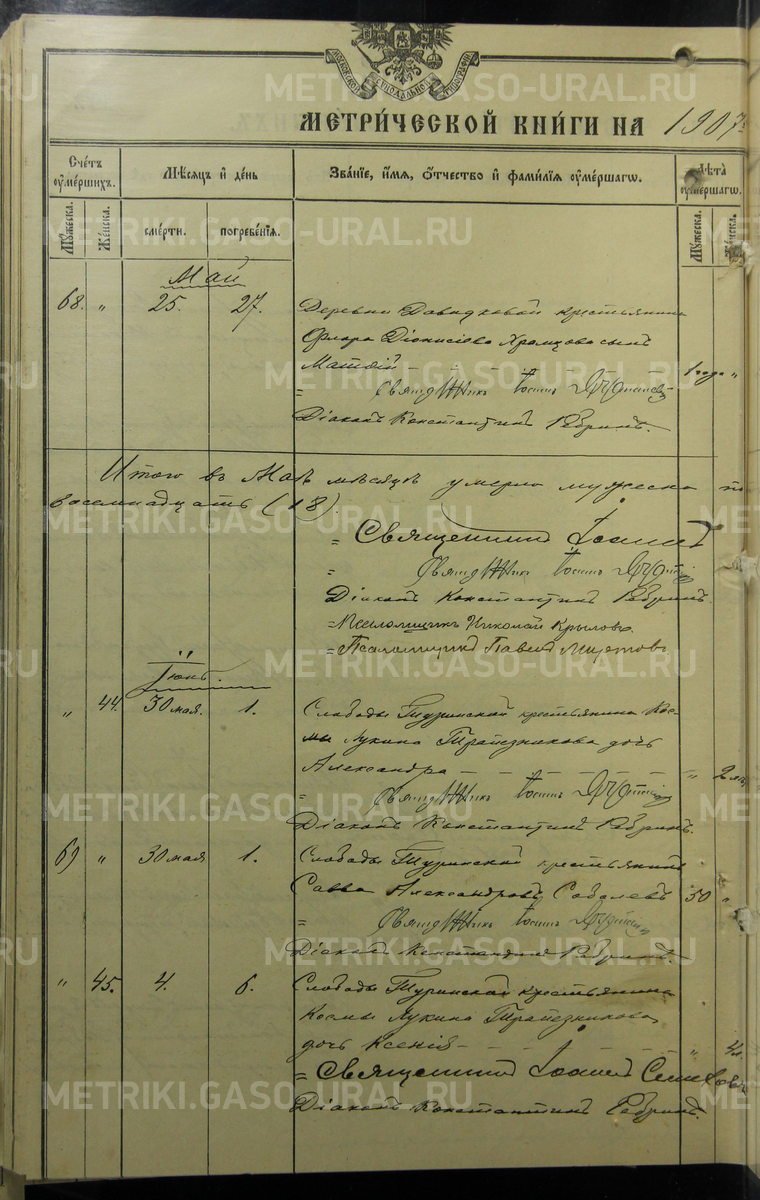 МОСКОВСКОЙ СѴНОДАЛЬНОЙ ТИПОГРАФІИ
МЕТРИ́ЧЕСКОЙ КНИ́ГИ НА 1907
Сче́тъ ᲂу҆ме́ршихъ.
Мѣ́сяцъ и҆ де́нь
Зва́нїе, и҆́мя, ѻ҆́тчество и҆ фами́лїя ᲂу҆ме́ршагѡ.
Лѣ́та ᲂу҆ме́ршагѡ.
Мꙋ́жеска.
Же́нска.
сме́рти.
погребе́нїя.
Мꙋ́жеска.
Же́нска.
Май
68. „ 25. 27. Деревни Давыдковой крестьянина
Флора Діонисіева Храмцова сынъ
Матѳій 1 года „
= Священникъ Іоаннъ
Діаконъ Константинъ Ребринъ.
Итого въ Маѣ мѣсяцѣ умерло мужеска
восемнадцать (18).
= Священникъ Іоаннъ
= Священникъ Іоаннъ
Діаконъ Константинъ Ребринъ.
= Псаломщикъ Николай Крыловъ.
= Псаломщикъ Павелъ
Іюнь.
„ 44. 30 мая. 1. Слободы Туринской крестьянина Кос-
мы Лукина Трапезникова дочь
Александра „ 2
= Священникъ Іоаннъ
Діаконъ Константинъ Ребринъ.
69 „ 30 мая 1. Слободы Туринской крестьянинъ
Савва Александровъ Соболевъ 50 „
= Священникъ Іоаннъ
Діаконъ Константинъ Ребринъ.
„ 45. 4. 6. Слободы Туринской крестьянина
Космы Лукина Трапезникова
дочь Ксенія „ 4
= Священникъ Іоаннъ
Діаконъ Константинъ Ребринъ.
METRIKI.GASO-URAL.RU